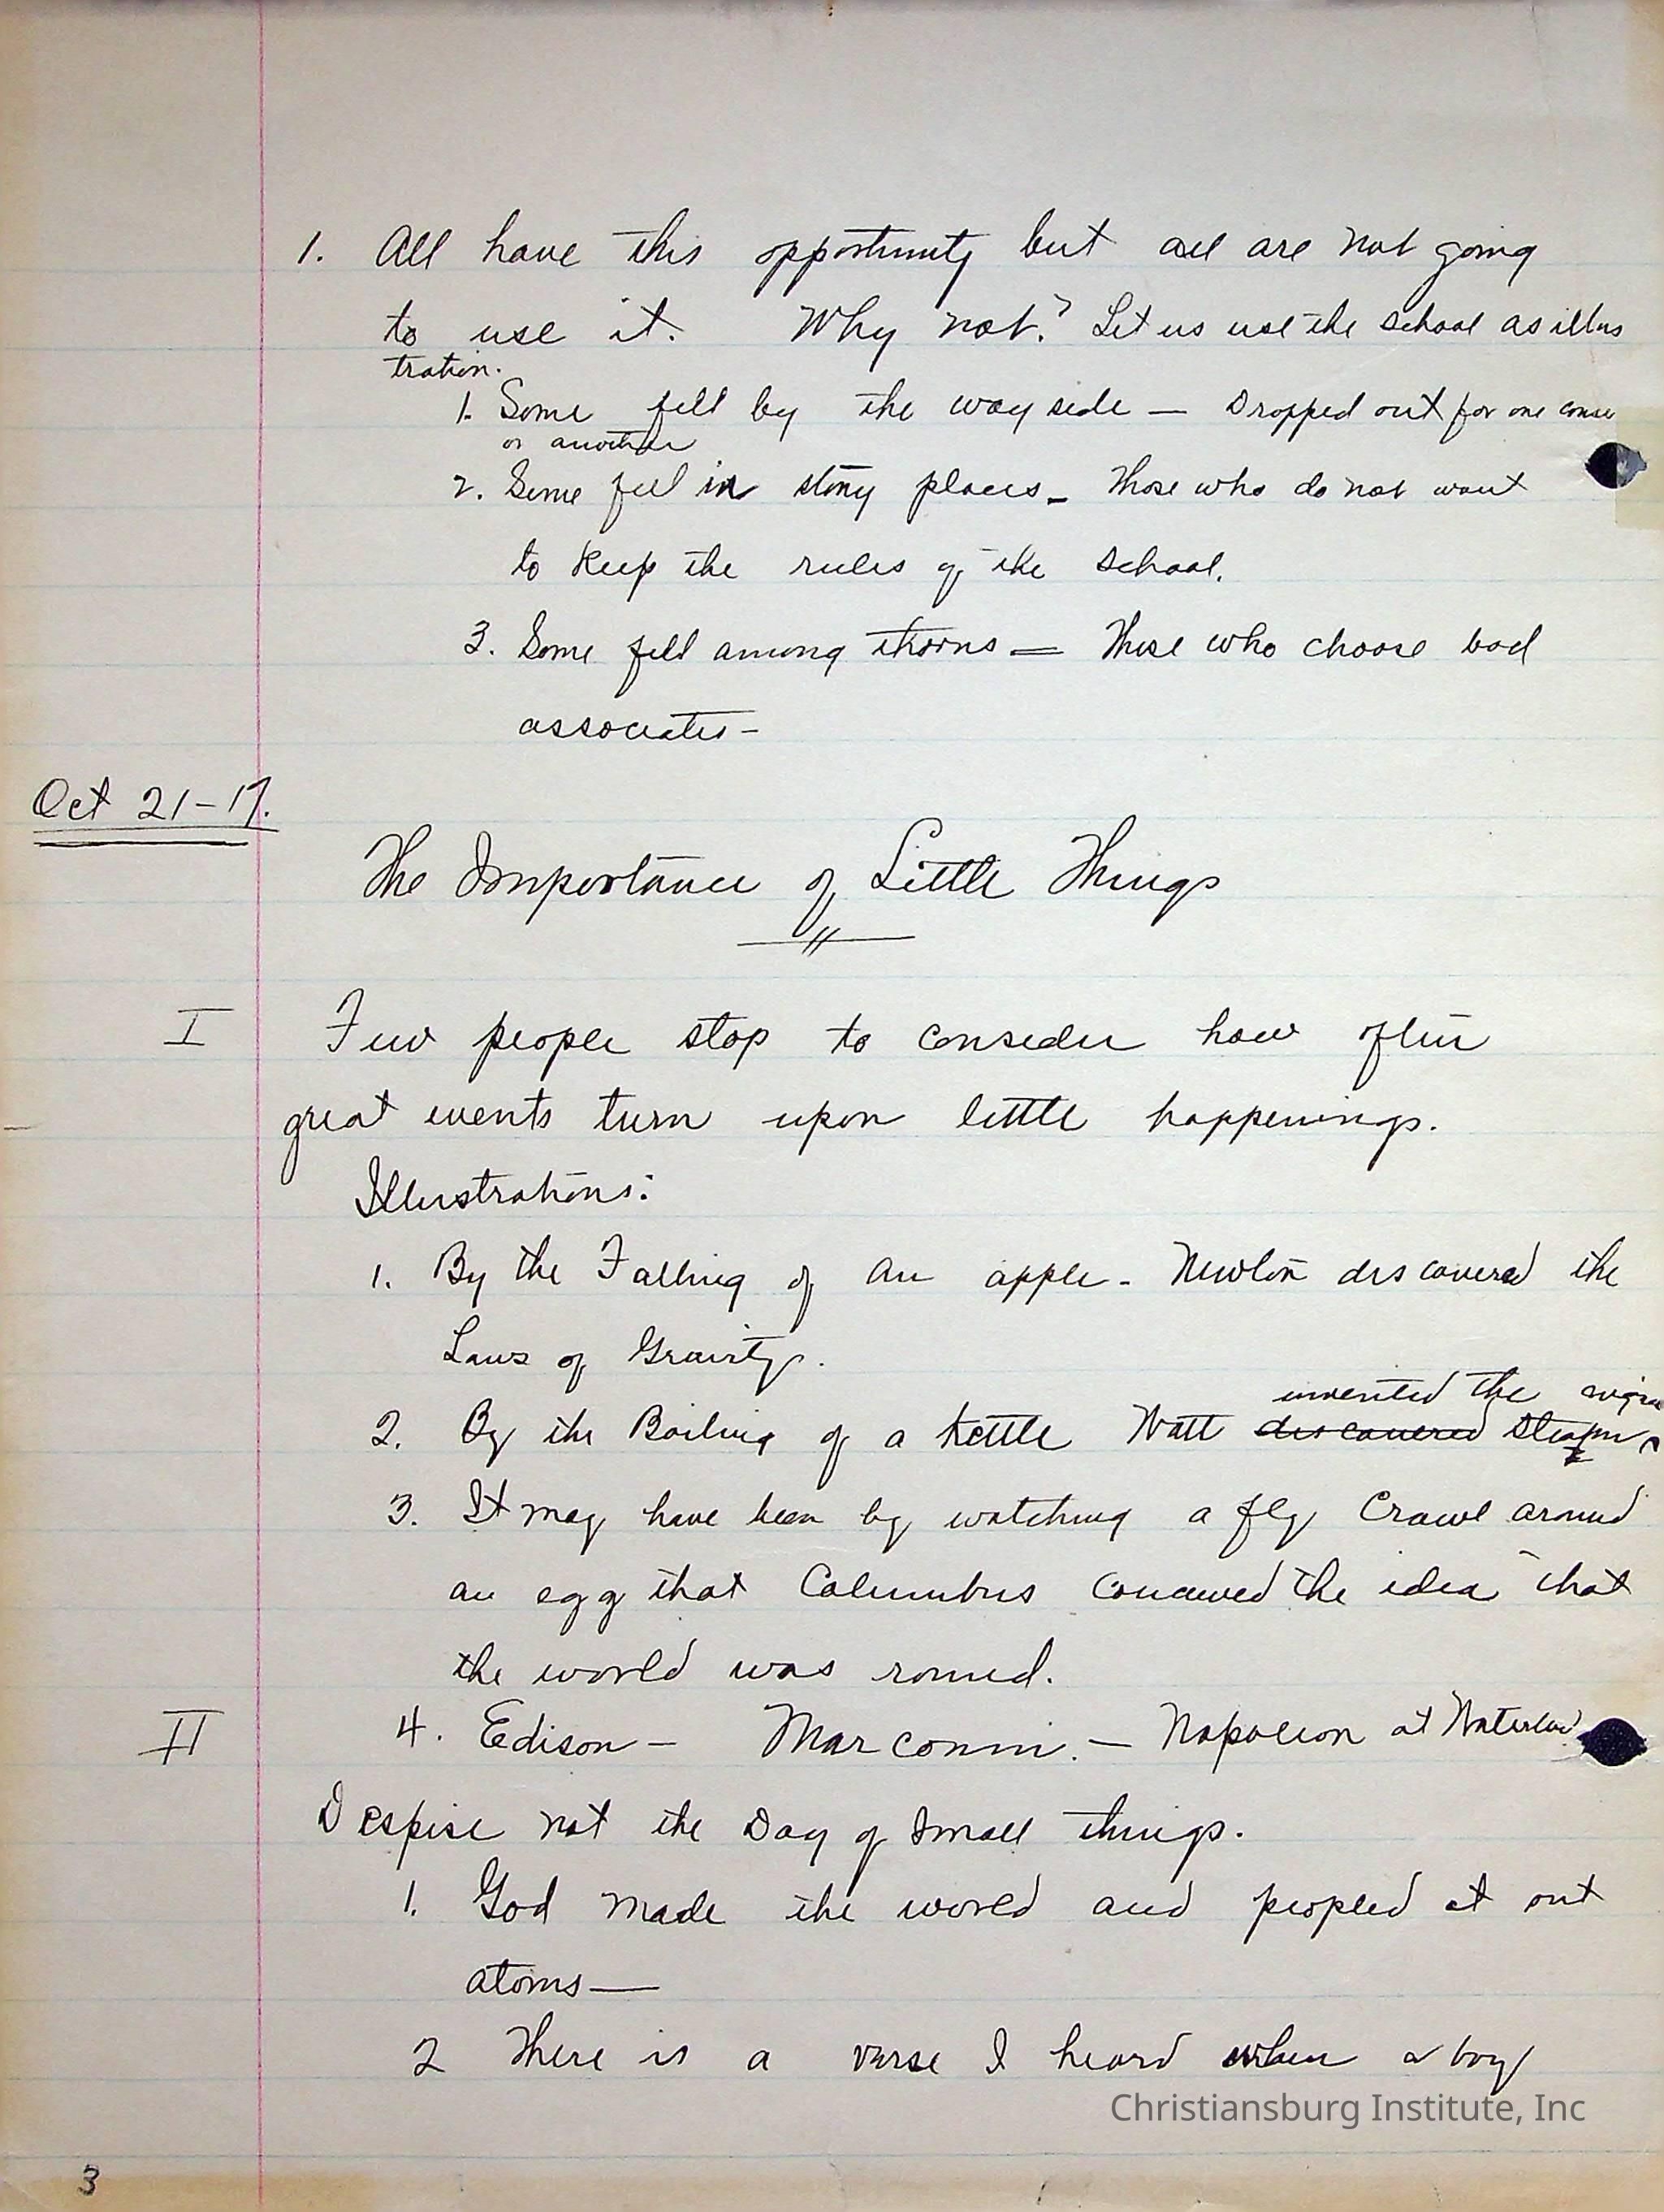 1. All have this opportunity but all are not going
to use it. Why not? Let us use the school as illus
tration.
1. Some fell by the way side — Dropped out for one cause
or another
2. Some fell in stony places - Those who do not want
to keep the rules of the school.
3. Some fell among thorns = Those who choose bad
associates -
Oct 21-17.
The Importance of Little Things
I Few people stop to consider how often
great events turn upon little happenings.
Illustrations:
1. By the Falling of an apple - Newton discovered the
Laws of Gravity.
invented the
2. By the Boiling of a kettle Watt discovered steam
3. It may have been by watching a fly Crawl around
an egg that Columbus conceived the idea that
the world was round.
II 4. Edison - Marconni. - Napoleon at Waterloo
Despise not the Day of Small things.
1. God made the world and peopled it out
atoms —
2 There is a verse I heard when a boy
Christiansburg Institute, Inc
3